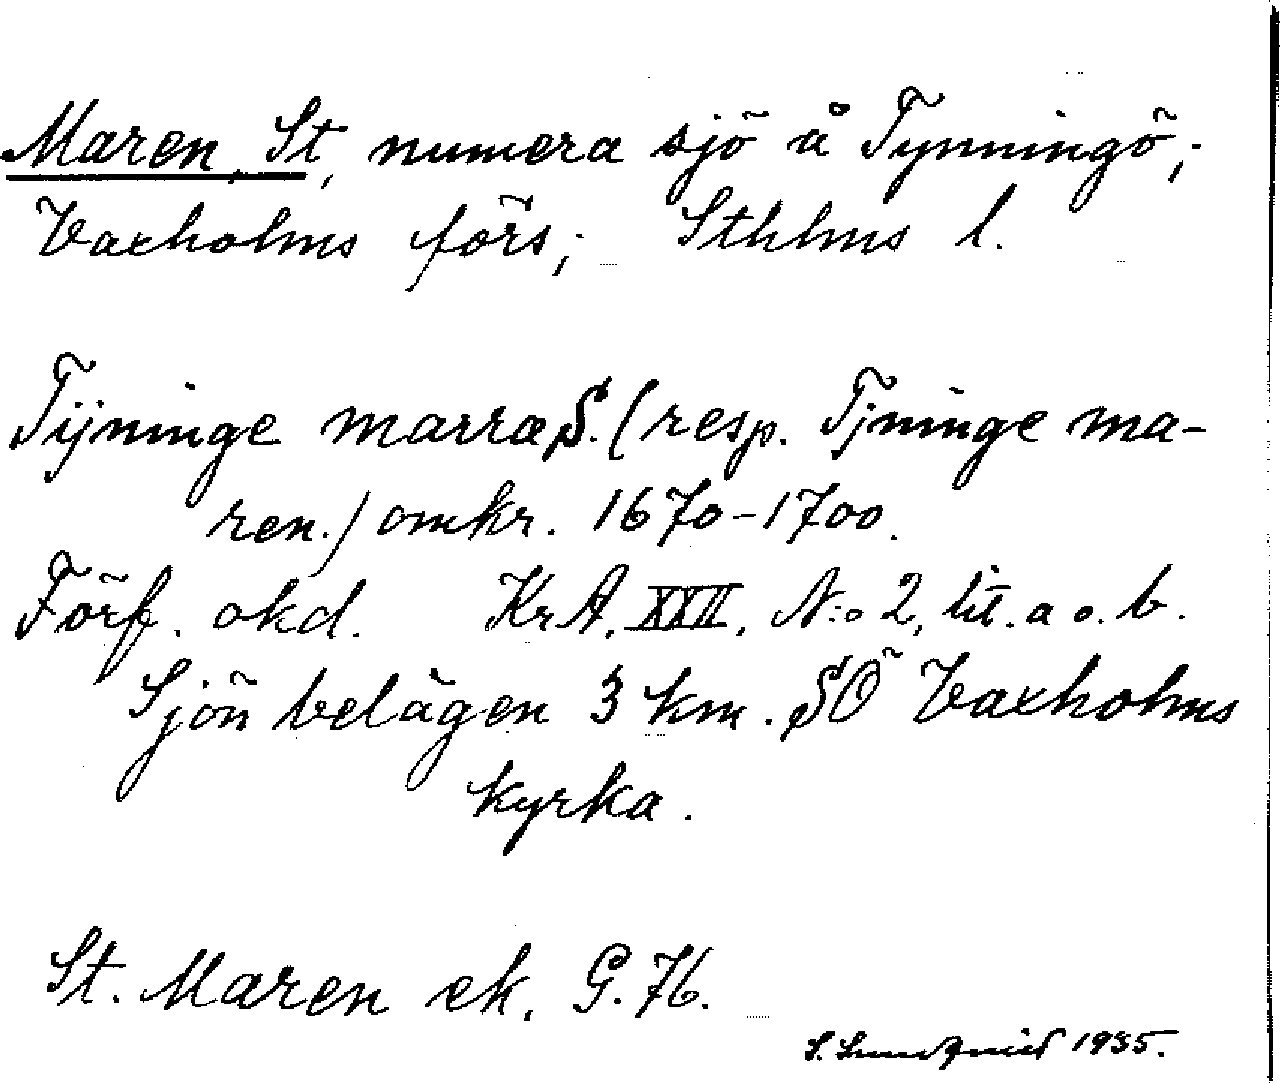 Maren, St, numera sjö å Tynningö,
Vaxholms förs, Sthlms l.
Tijninge marra S. (resp. Tjninge ma-
ren.) omkr. 1670-1700.
Förf. okd. KrA, XXII, N:o 2, lit. a o. b.
Sjön belägen 3 km. SÖ Vaxholms
kyrka.
St. Maren ek. G. 76.
S. Lundquist 1935.